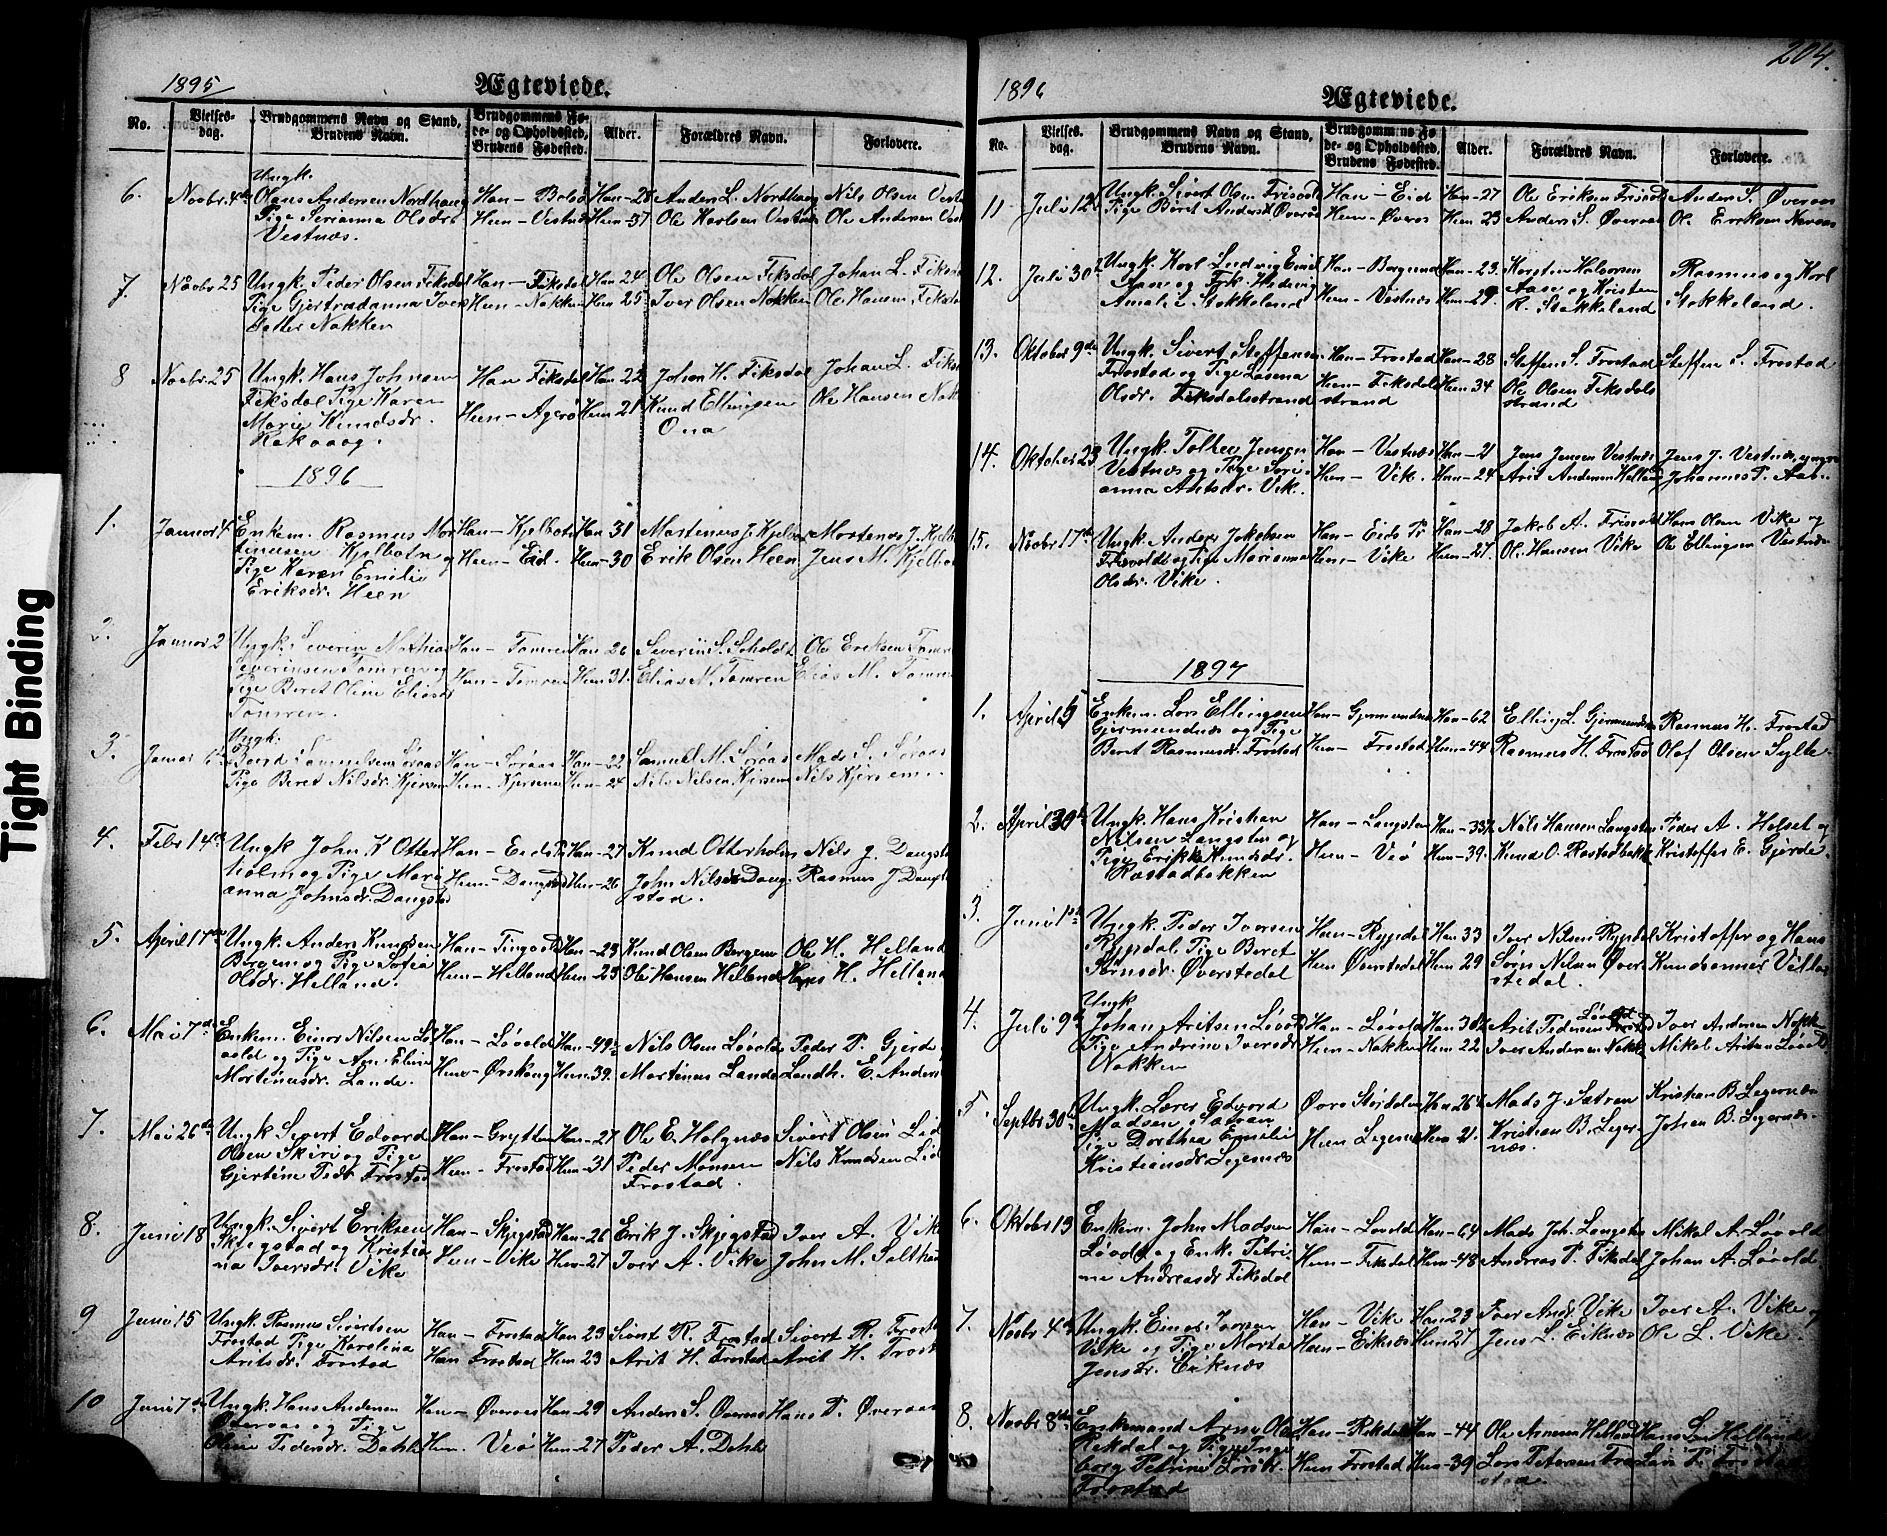 Tight Binding
1895
Ægteviede.
No.
Vielses-
dag.
Brudgommens Navn og Stand,
Brudens Navn.
Brudgommens Fø-
de- og Opholdssted,
Brudens Fødested.
Alder.
Forældres Navn.
Forlovere.
6.
Novbr. 4de
Ungk.
Hans Andersen Nordhaug
Pige Serianna Olsdr.
Vestnæs.
Han - Bolsø
Hun - Vestnæs
Han - 28
Hun - 37
Anders L. Nordhaug
Ole Karlsen Vestnæs
Nils Olsen Vestn
Ole Andersen Vestn
7.
Novbr 25
Ungk. Peder Olsen Fiksdal
Pige Gjertrudanna Ivers
datter Nakken
Han - Fiksdal
Hun - Nakken
Han 24
Hun 25
Ole Olsen Fiksdal
Iver Olsen Nakken
Johan L. Fiksd
Ole Hansen Fiksd
8
Novbr. 25
Ungk. Hans Johnsen
Fiksdal Pige Karen
Marie Knudsdr.
Rakvaag.
Han Fiksdal
Hun - Agerø
Han 22
Hun 21
Johan H. Fiksdal
Knud Ellingsen
Ona
Johan L. Fiks
Ole Hansen Nak
1896
1.
Januar 4
Enkem. Rasmus Mar
tinusen Kjelbotn og
Pige Karen Emilie
Eriksdr. Heen
Han - Kjelbotn
Hun - Eid.
Han 31
Hun - 30
Martinus J. Kjelbot
Erik Olsen Heen
Martenus J. Kjelb
Jens M. Kjelbot
2.
Januar 2
Ungk. Severin Mathias
Severinsen Tomren og
Pige Beret Oline Eliasd
Tomren.
Han - Tomren
Hun - Tomren
Han 26
Hun 31.
Severin S. Soholdt
Elias M. Tomren
Ole Eriksen Tomr
Elias M. Tomre
3.
Januar
Ungk.
Baard Samuelsen Søraas
Pige Beret Nilsdr. Kjersem
Han - Søraas
Hun - Kjersem
Han - 22
Hun - 24
Samuel M. Søraas
Nils Nilsen Kjersem
Mads S. Søraas
Nils Kjersem
4.
Febr 14de
Ungk John K Otter
holm og Pige Mari
anna Johnsdr. Daugstad
Han - Eids Pr
Hun - Daugstad
Han - 27
Hun - 26
Knud Otterholm
John Nilsen Daug.
stad.
Nils J. Daugsta
Rasmus J Daugst
5.
April 17de
Ungk. Anders Knudsen
Bergem og Pige Sofia
Olsdr. Helland.
Han - Tingvold
Hun - Helland
Han - 23
Hun - 23
Knud Olsen Bergem
Ole Hansen Helland
Ole H. Helland
Hans H. Helland
6.
Mai 7de
Enkem. Einar Nilsen Lø
vold og Pige An. Elina
Martinusdr. Lande.
Han - Løvold
Hun - Ørskoug
Han - 49½
Hun - 39.
Nils Olsen Løvold
Martinus Lande
Peder P. Gjerde
Landh. E. Anders
7.
Mai 26de
Ungk Sivert Edvard
Olsen Skiri og Pige
Gjertine Pedr. Frostad
Han - Grytten
Hun - Frostad
Han - 27
Hun - 31
Ole E. Holgnæs
Peder Monsen
Frostad.
Sivert Olsen Lid
Nils Knudsen Lid
8.
Juni 18
Ungk. Sivert Eriksen
Skjegstad og Kristia
na Iversdr. Vike
Han - Skjegstad
Hun - Vike
Han - 26
Hun - 27
Erik J. Skjegstad
Iver A. Vike
Iver A. Vike
John M. Salthe
9
Juni 15
Ungk. Rasmus Sivertsen
Frostad Pige Karolina
Aritsdr. Frostad
Han - Frostad
Hun Frostad
Han 23
Hun 23
Sivert R. Frostad
Arit H. Frostad
Sivert R. Frost
Arit H. Frost
10
Juni 7de
Ungk. Hans Andersen
Øveraas og Pige
Oline Pedersdr. Dahle
Han - Øveraas
Hun. Veø
Han - 29
Hun - 27
Anders S. Øveraas
Peder A. Dahle
Hans P. Øveraas
204.
1896
Ægteviede.
No.
Vielses-
dag.
Brudgommens Navn og Stand,
Brudens Navn.
Brudgommens Fø-
de- og Opholdssted,
Brudens Fødested.
Alder.
Forældres Navn.
Forlovere.
11
Juli 12
Ungk. Sivert Olsen Frisvold
Pige Børit Andersd Øveraas
Han - Eid
Hun - Øveras
Han - 27
Hun 23
Ole Eriksen Frisvold
Anders S. Øveraas
Anders S. Øveraas
Ole Eriksen Næraas
12.
Juli 30
Ungk. Karl Ludvig Emil
Aase og Frk. Hedvig
Amalie Stokkeland
Han - Borgund
Hun - Vestnæs
Han - 23.
Hun - 29.
Karsten Halvorsen
Aase og Kristen
R. Stokkeland
Rasmus og Karl
Stokkeland.
13.
Oktober 9de
Ungk. Sivert Steffensen
Frostad og Pige Lasina
Olsdr. Fiksdalsstrand
Han - Frostad
Hun - Fiksdals
strand
Han - 28
Hun - 34
Steffen S. Frostad
Ole Olsen Fiksdals
strand
Steffen S. Frostad
14.
Oktober 23
Ungk. Tollev Jensen
Vestnæs og Pige Seri-
anna Aritsdr. Vik.
Han - Vestnæs
Hun - Vik.
Han - 21
Hun - 24
Jens Jensen Vestnæs
Arit Andersen Helland
Jens J. Vestnæs, yngre
Johannes P. Aas.
15.
Novbr 17de
Ungk. Anders Jakobsen
Frisvold og Pige Marianna
Olsdr. Vike.
Han - Eids Pr
Hun, - Vike
Han - 28
Hun - 27.
Jakob A. Frisvold
Ole Hansen Vike
Hans Olsen Vike og
Ole Ellingsen Vestnæs
1897
1.
April 5
Enkem. Lars Ellingsen
Gjermundnæs og Pige
Berit Rasmusdr. Frostad
Han - Gjermundnæs
Hun - Frostad
Han - 62
Hun - 44
Elling L. Gjermundnæs
Rasmus H. Frostad
Rasmus H. Frostad
Olaf Olsen Sylte
2.
April 30te
Ungk. Hans Kristian
Nilsen Langsten og
Pige Erikke Knudsdr.
Rastadbakken
Han - Langsten
Hun - Veø
Han - 33½
Hun - 39.
Nils Hansen Langsten
Knud O. Rastadbakk
Peder A. Helset og
Kristoffer E. Gjerde.
3.
Juni 1ste
Ungk. Peder Iversen
Rypdal, Pige Beret
Sørnsdr. Øverstedal
Han - Rypdal
Hun Øverstedal
Han 33
Hun 29
Iver Nilsen Rypdal
Sørn Nilsen Øver.
stedal.
Kristoffer og Hans
Knudsønner Villa
4.
Juli 9de
Ungk
Johan Aritsen Løvold
Pige Andrine Iversdr.
Nakken
Han - Løvold
Hun - Nakken
Han 30½
Hun 22
Arit Pedersen Løvold
Iver Andersen Nakk
Iver Andersen Nakk-
Mikal Aritsen Løvold
5.
Septbr 30te
Ungk. Lærer Edvard
Madsen Sætran
Pige Dorthea Emilie
Kristiansdr. Legernæs
Øvre Stordalen
Hun Legernæs
Han 26½
Hun - 21.
Mads J. Sætren
Kristian B. Leger-
næs.
Kristian B. Legernæs
Johan B. Legernæs.
6.
Oktobr 13
Enkem. John Madsen
Løvold og Enk. Petri-
ne Andreasdr Fiksdal
Han - Løvold
Hun - Fiksdal
Han - 64
Hun - 48
Mads Joh. Langsten
Andreas P. Fiksdal
Mikal A. Løvold
Johan A. Løvold.
7.
Novbr 4de
Ungk. Einar Iversen
Vike og Pige Marta
Jensdr. Eiknæs
Han - Vike
Hun - Eiknæs
Han 23
Hun 27
Iver Andr. Vike
Jens L. Eiknæs
Iver A. Vike og
Ole L. Vike.
8.
Novbr 8de
Enkemand Arne Ols
Rekdal og Pige Inge
borg Petrine Larsdr.
Frostad
Han - Rekdal
Hun Frostad
Han - 44
Hun - 39
Ole Arnesen Helland
Lars Petersen Fro
stad.
Hans L. Helland
Lars P. Frostad